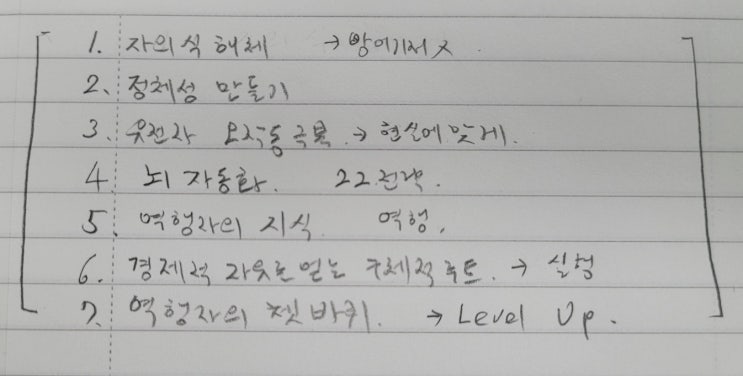 1. 자의식 해체 → 방어기제 X.
2. 정체성 만들기
3. 유전자 오작동 극복. → 현실에 맞게.
4. 뇌 자동화. 22전략.
5. 역행자의 지식. 역행.
6. 경제적 자유를 얻는 구체적 루트. → 실행
7. 역행자의 쳇바퀴. → Level Up.